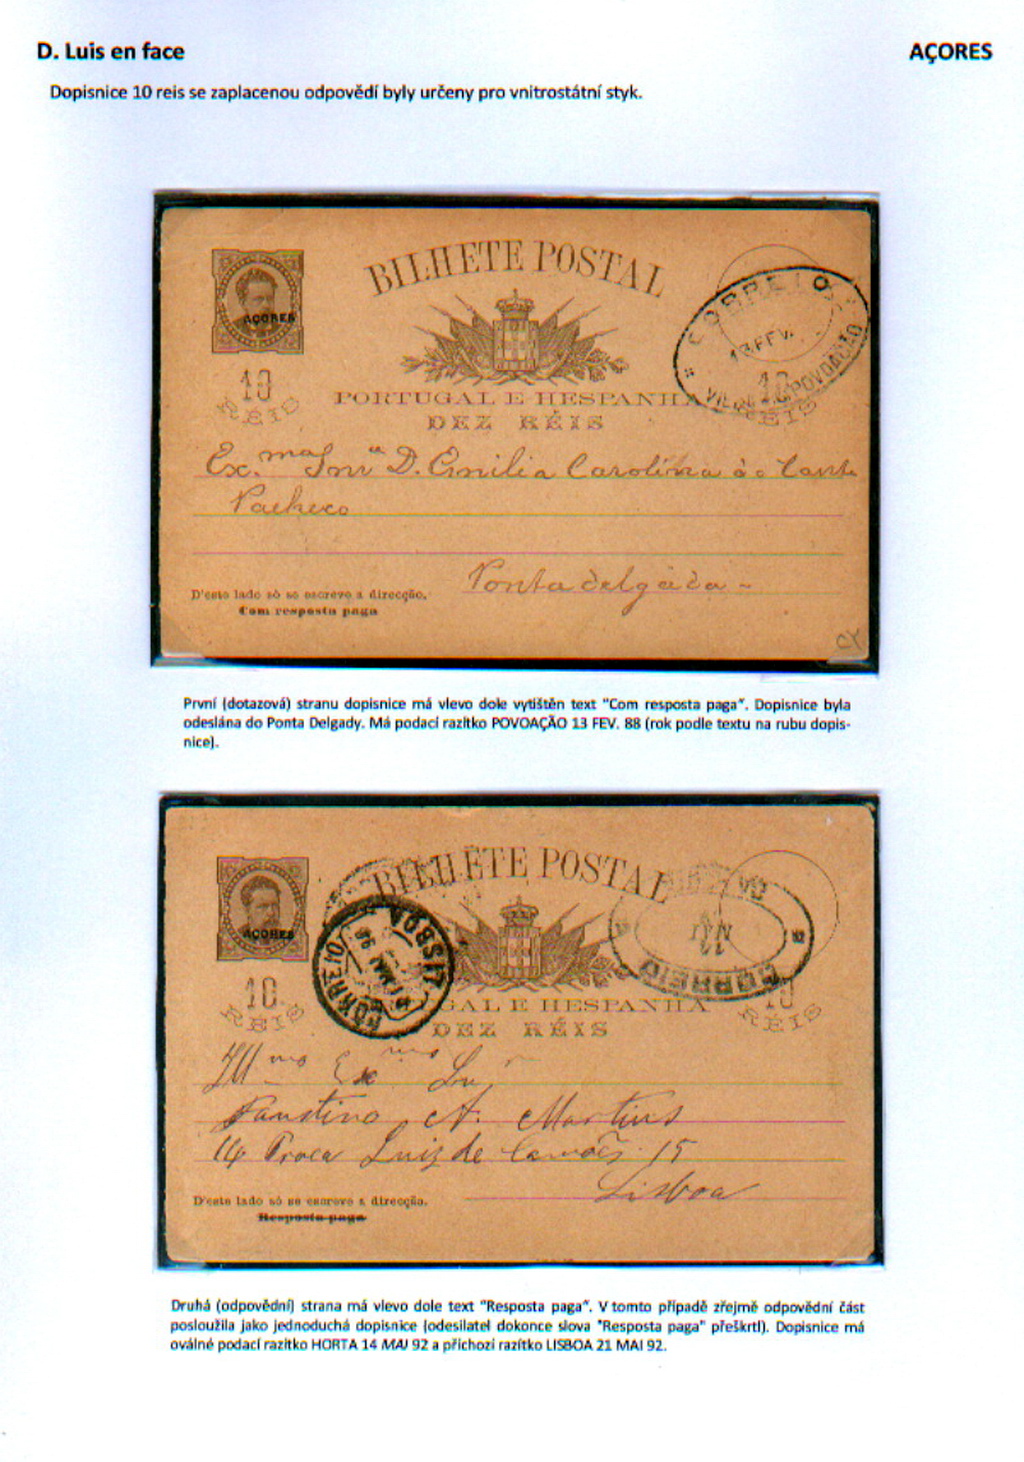 D. Luis en face
AÇORES
Dopisnice 10 reis se zaplacenou odpovědí byly určeny pro vnitrostátní styk.
BILHETE POSTAL
AÇORES
CORREIO
13 FEV.
POVOAÇÃO
10
RÉIS
10
RÉIS
PORTUGAL E HESPANHA
DEZ RÉIS
Ex.ma Snrª D. Emilia Carolina do Canto
Pacheco
Ponta delgada -
D'este lado só se escreve a direcção.
Com resposta paga
CY
První (dotazová) stranu dopisnice má vlevo dole vytištěn text "Com resposta paga". Dopisnice byla
odeslána do Ponta Delgady. Má podací razítko POVOAÇÃO 13 FEV. 88 (rok podle textu na rubu dopis-
nice).
BILHETE POSTAL
AÇORES
CORREIO
LISBOA
CORREIO
10
RÉIS
10
RÉIS
GAL E HESPANHA
DEZ RÉIS
Illmo Exmo Snr
Faustino A. Martins
Praça Luiz de Camões 15
Lisboa
D'este lado só se escreve a direcção.
Resposta paga
Druhá (odpovědní) strana má vlevo dole text "Resposta paga". V tomto případě zřejmě odpovědní část
posloužila jako jednoduchá dopisnice (odesilatel dokonce slova "Resposta paga" přeškrtl). Dopisnice má
oválné podací razítko HORTA 14 MAI 92 a příchozí razítko LISBOA 21 MAI 92.